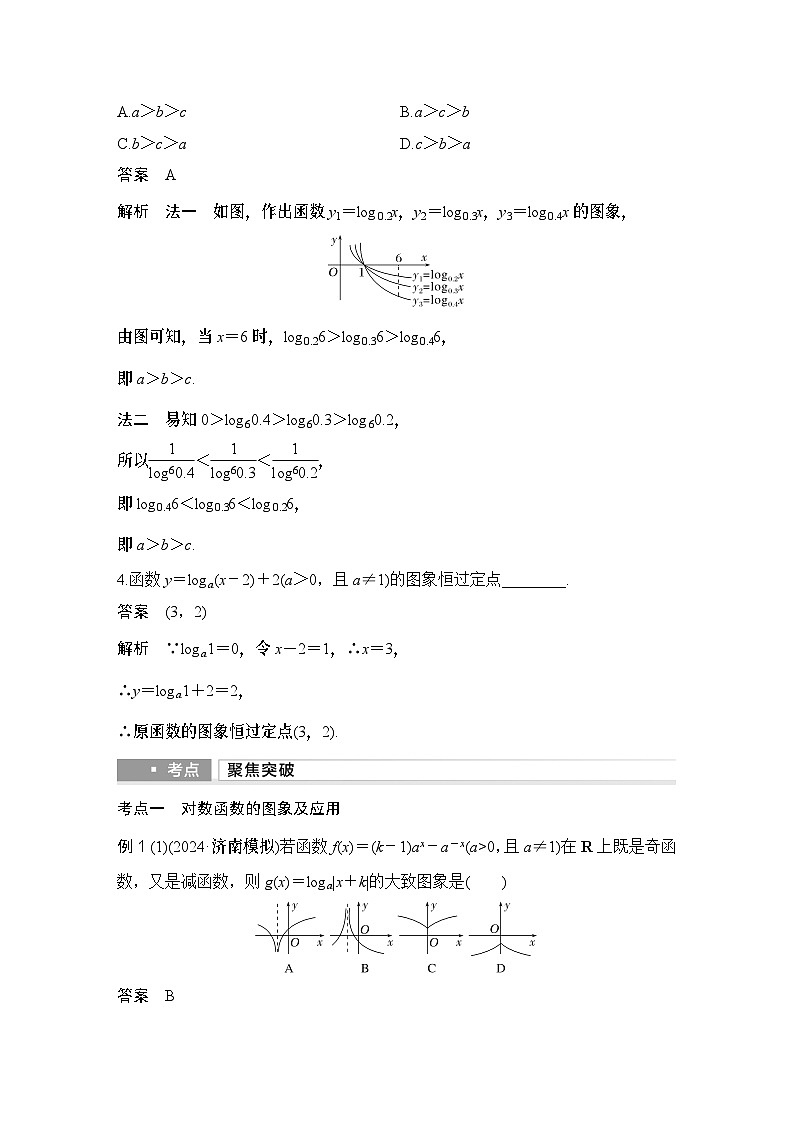 A.a＞b＞c B.a＞c＞b
C.b＞c＞a D.c＞b＞a
答案 A
解析 法一 如图，作出函数y₁＝log₀.₂x，y₂＝log₀.₃x，y₃＝log₀.₄x的图象，
y
6 x
O 1
y₁=log₀.₂x
y₂=log₀.₃x
y₃=log₀.₄x
由图可知，当x＝6时，log₀.₂6＞log₀.₃6＞log₀.₄6，
即a＞b＞c.
法二 易知0＞log₆0.4＞log₆0.3＞log₆0.2，
所以1/log⁶0.4＜1/log⁶0.3＜1/log⁶0.2，
即log₀.₄6＜log₀.₃6＜log₀.₂6，
即a＞b＞c.
4.函数y＝logₐ(x－2)＋2(a＞0，且a≠1)的图象恒过定点________.
答案 (3，2)
解析 ∵logₐ1＝0，令x－2＝1，∴x＝3，
∴y＝logₐ1＋2＝2，
∴原函数的图象恒过定点(3，2).
考点 聚焦突破
考点一 对数函数的图象及应用
例1 (1)(2024·济南模拟)若函数f(x)＝(k－1)aˣ－a⁻ˣ(a>0，且a≠1)在R上既是奇函
数，又是减函数，则g(x)＝logₐ|x＋k|的大致图象是( )
y y y y
O x O x O x O x
A B C D
答案 B